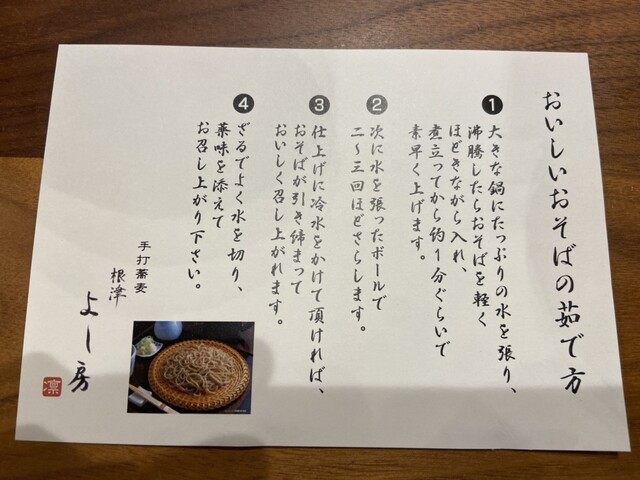 おいしいおそばの茹で方
❶ 大きな鍋にたっぷりの水を張り、
沸騰したらおそばを軽く
ほどきながら入れ、
煮立ってから約1分ぐらいで
素早く上げます。
❷ 次に水を張ったボールで
二～三回ほどさらします。
❸ 仕上げに冷水をかけて頂ければ、
おそばが引き締まって
おいしく召し上がれます。
❹ ざるでよく水を切り、
薬味を添えて
お召し上がり下さい。
手打蕎麦
根津
よし房
凛